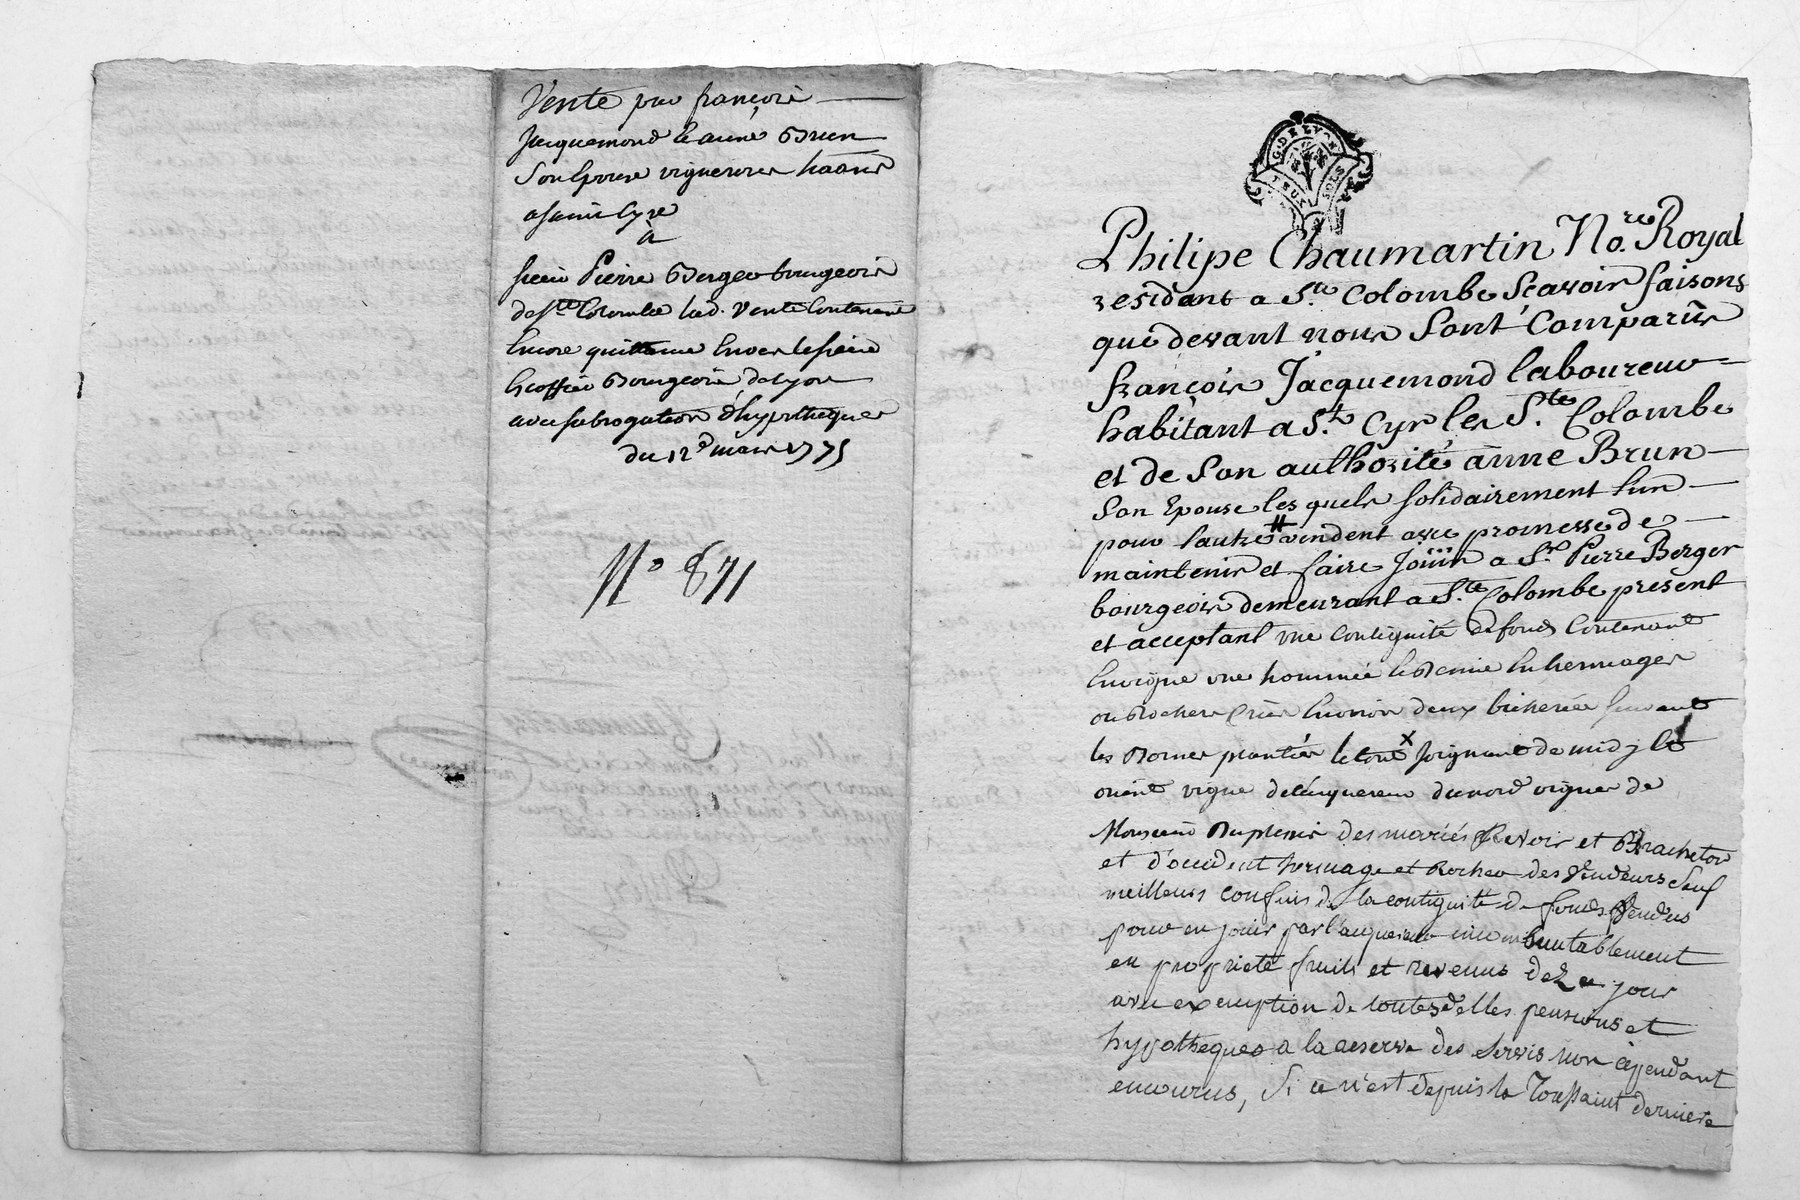 Vente par françois
Jacquemond & anne Brun
Son Epouse vignerons habts
a saint Cyre
à
sieur Pierre Berger bourgeois
de Ste Colombe lad. Vente Contenant
Encore quittance Envers le sieur
Bourgeois de Lyon
avec subrogation d'hypotheques
du 12e mars 1775
No 871
G. DE LYON
DEUX SOLS
Philipe Chaumartin No.re Royal
residant a Ste Colombe Scavoir faisons
que devant nous Sont Comparûs
françois Jacquemond laboureur
habitant a St. Cyr les Ste Colombe
et de Son authorité anne Brun
Son Epouse les quels solidairement lun
pour lautre # vendent avec promesse de
maintenir et faire Joüir a Sr. Pierre Berger
bourgeois demeurant a Ste Colombe present
et acceptant une Contiguité de fonds Contenant
En vigne une hommée & demie En hermages
ou Rochers Cris Environ deux bicherées suivant
les Bornes plantées le tout x Joignant de midy &
orient vigne de l'acquereur du nord vignes de
Monsieur Duplessis des mariés Revoir et Bracheton
et d'occident hermage et Rocher des Vendeurs Sauf
meilleurs confins de la contiguité de fonds Vendus
pour en jouir par l'acquereur incommutablement
en proprieté fruits et revenus dez ce jour
avec exemption de toutes dettes pensions et
hypotheques a la reserve des Servis non cependant
encourus, Si ce n'est depuis la Toussaint derniere